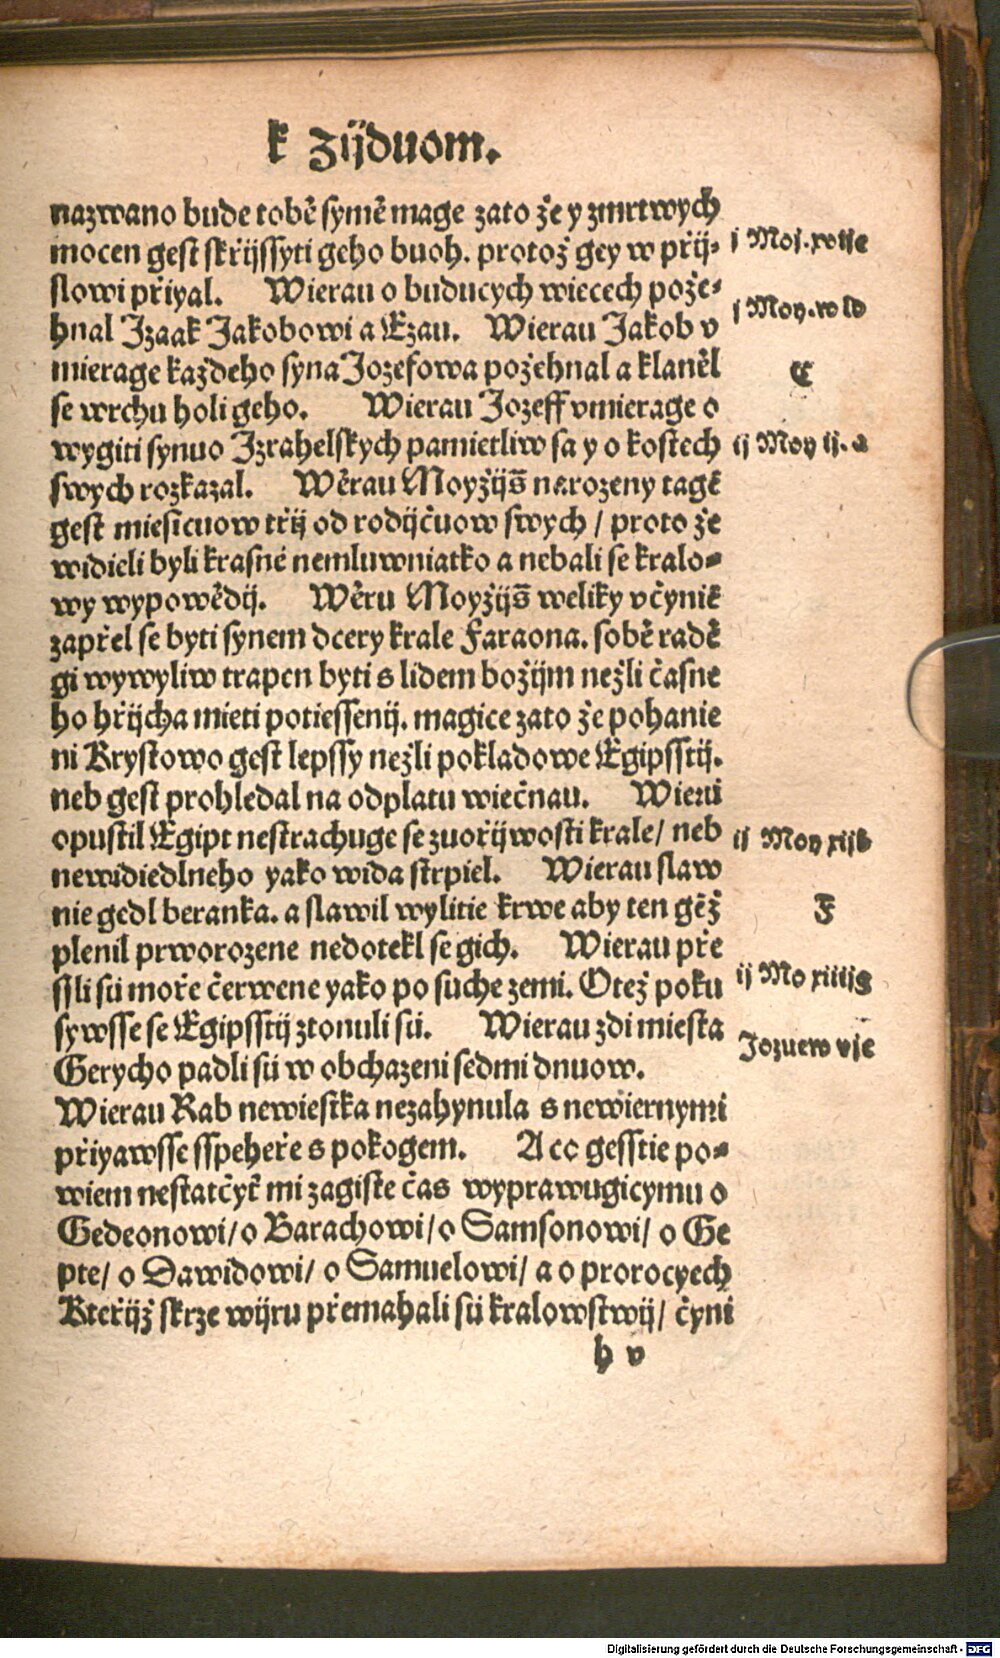 k Zijduom.
nazwano bude tobě symě mage zato že y zmrtwych
mocen gest skřijssyti geho buoh. protož gey w přij-
slowi přiyal. Wierau o buducych wiecech pože-
hnal Jzaak Jakobowi a Ezau. Wierau Jakob v
mierage každeho syna Jozefowa požehnal a klaněl
se wrchu holi geho. Wierau Jozeff vmierage o
wygiti synuo Jzrahelskych pamietliw sa y o kostech
swych rozkazal. Wěrau Moyžijš narozeny tagě
gest miesicuow třij od rodijčuow swych / proto že
widieli byli krasné nemluwniatko a nebali se kralo-
wy wypowědij. Wěru Moyžijš weliky včynie
zapřel se byti synem dcery krale Faraona. sobě radě
gi wywyliw trapen byti s lidem božijm nežli časne
ho hřijcha mieti potiessenij. magice zato že pohanie
ni Krystowo gest lepssy nežli pokladowe Egipsstij.
neb gest prohledal na odplatu wiečnau. Wieru
opustil Egipt nestrachuge se zuořijwosti krale / neb
newidiedlneho yako wida strpiel. Wierau slaw
nie gedl beranka. a slawil wylitie krwe aby ten gěž
plenil prworozene nedotekl se gich. Wierau pře
ssli sú moře čerwene yako po suche zemi. Otež poku
sywsse se Egipsstij ztonuli sú. Wierau zdi miesta
Gerycho padli sú w obchazeni sedmi dnuow.
Wierau Rab newiestka nezahynula s newiernymi
přiyawsse sspeheře s pokogem. A co gesstie po-
wiem nestatčyť mi zagiste čas wyprawugicymu o
Gedeonowi / o Barachowi / o Samsonowi / o Ge
pte / o Dawidowi / o Samuelowi / a o prorocyech
Kteřijž skrze wijru přemahali sú kralowstwij / čyni
h v
j Moj. xvije
j Moy.
E
ij Moy ij. a
ij Moy xijb
F
ij Mo xiiijg
Jozuew vje
Digitalisierung gefördert durch die Deutsche Forschungsgemeinschaft - DFG